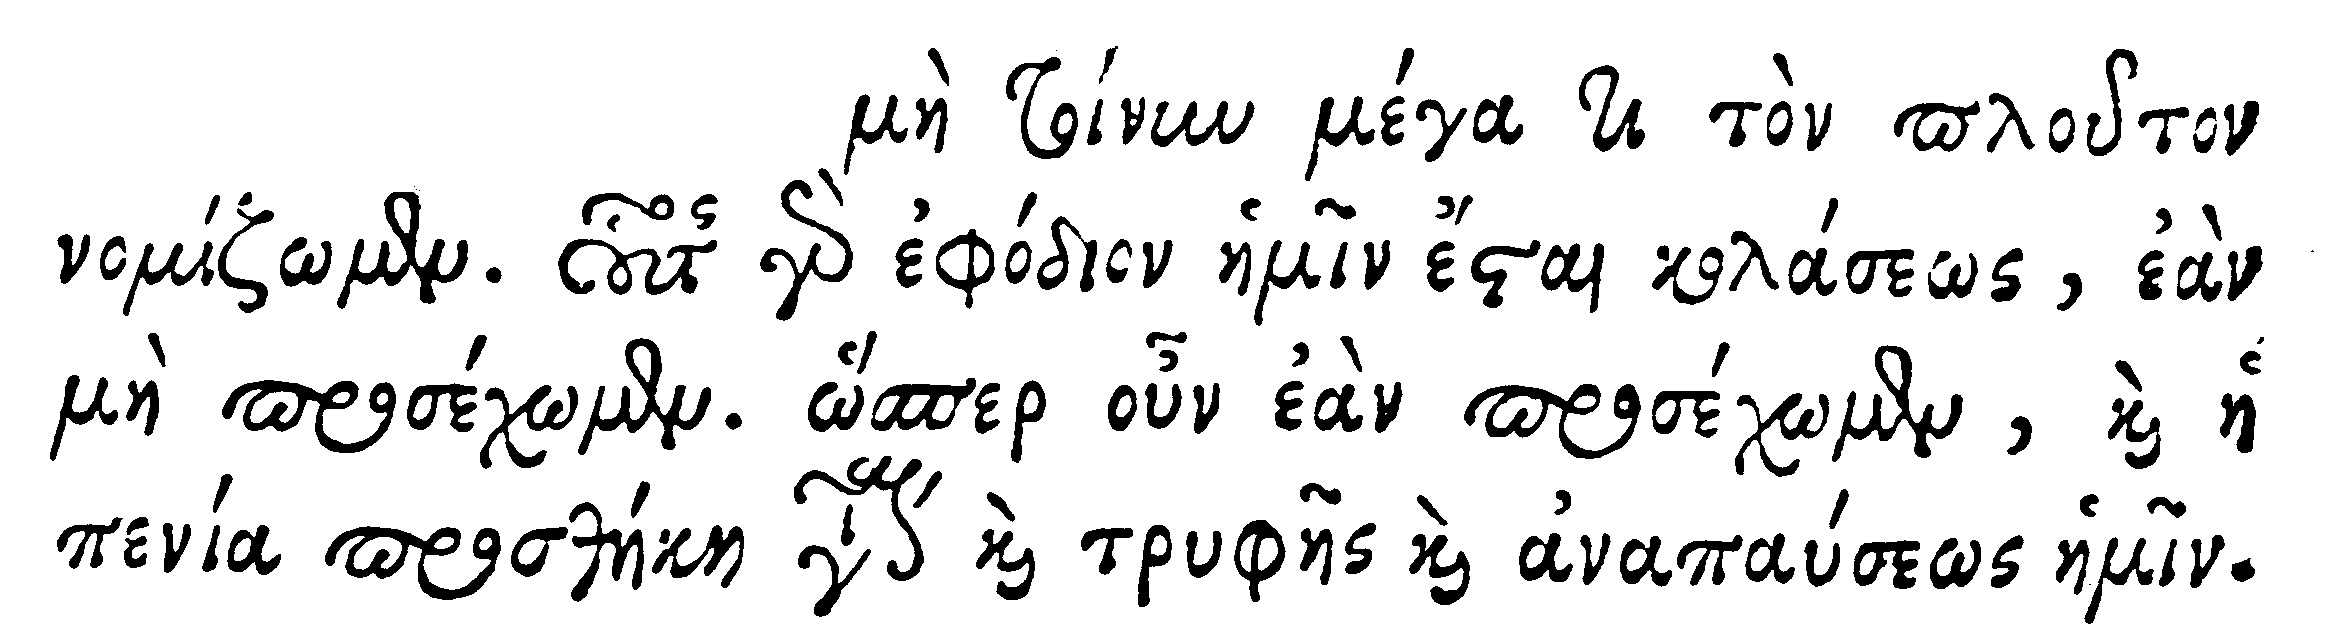 μὴ τοίνυν μέγα τι τὸν πλοῦτον
νομίζωμεν. οὗτος γὰρ ἐφόδιον ἡμῖν ἔσται κολάσεως, ἐὰν
μὴ προσέχωμεν. ὥσπερ οὖν ἐὰν προσέχωμεν, καὶ ἡ
πενία προσθήκη γίνεται καὶ τρυφῆς καὶ ἀναπαύσεως ἡμῖν.